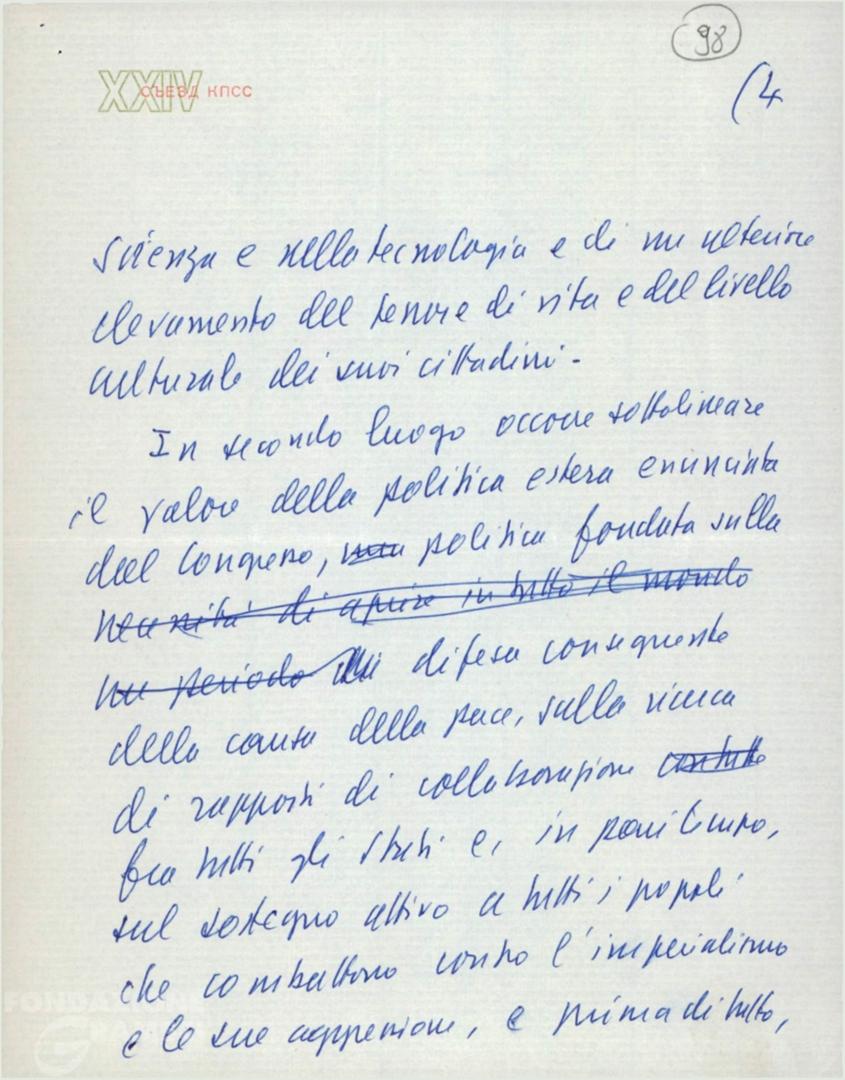 98
XXIV СЪЕЗД КПСС
(4
scienza e nella tecnologia e di un ulteriore
elevamento del tenore di vita e del livello
culturale dei suoi cittadini.
In secondo luogo occorre sottolineare
il valore della politica estera enunciata
dal Congresso, una politica fondata sulla
necessità di aprire in tutto il mondo
un periodo di difesa conseguente
della causa della pace, sulla ricerca
di rapporti di collaborazione con tutti
fra tutti gli Stati e, in pari tempo,
sul sostegno attivo a tutti i popoli
che combattono contro l'imperialismo
e le sue aggressioni, e prima di tutto,
FONDAZIONE